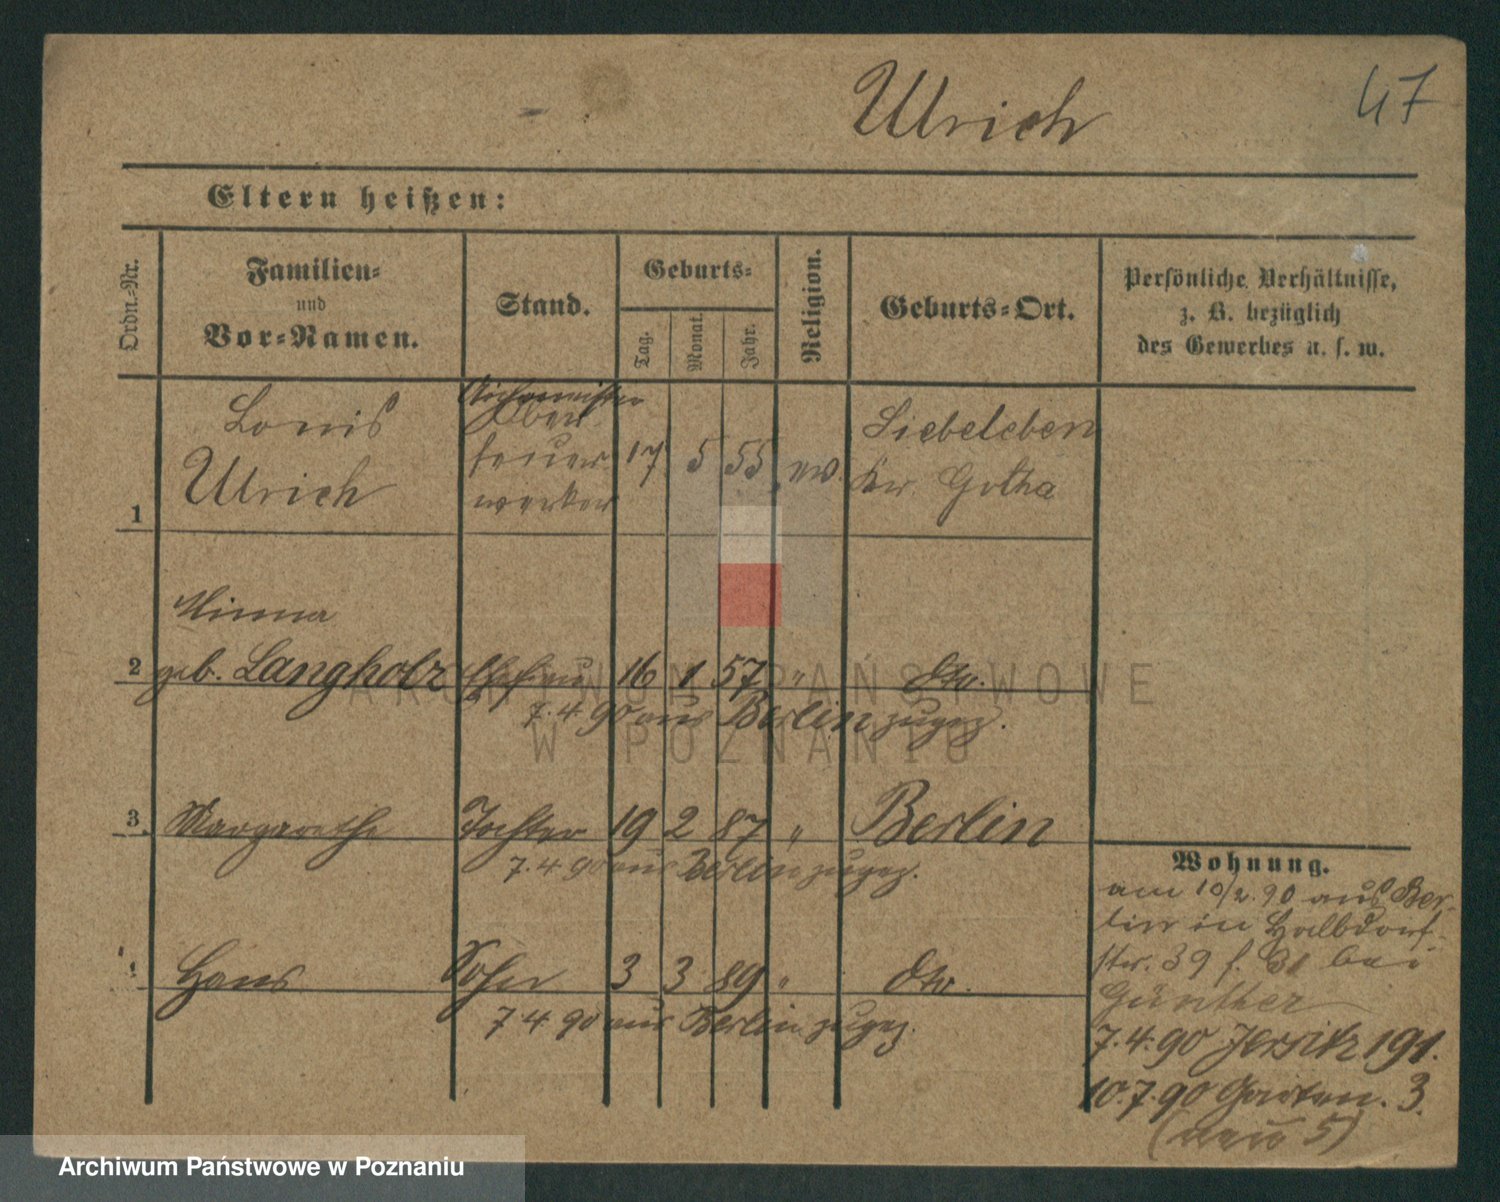 Ulrich 47
Eltern heißen:
Ordn.-Nr.
Familien-
und
Vor-Namen.
Stand.
Geburts-
Tag.
Monat.
Jahr.
Religion.
Geburts-Ort.
Persönliche Verhältnisse,
z. B. bezüglich
des Gewerbes u. s. w.
1
Louis
Ulrich
Ober
feuer
werker
17 5 55 ev.
Siebeleben
Kr Gotha
2
Minna
geb. Langholz Ehefrau 16 1 57 " dto.
7.4.90 aus Berlin zugez.
3. Margarethe Tochter 19 2 87 " Berlin
7.4.90 aus Berlin zugez.
4 Hans Sohn 3 3 89 " dto.
7.4.90 aus Berlin zugez.
Wohnung.
am 10/2.90 aus Ber-
lin in Halbdorf-
str. 39 f. bei
Günther
7.4.90 Jersitz 191.
10.7.90 Garten. 3.
(neu 5)
ARCHIWUM PAŃSTWOWE
W POZNANIU
Archiwum Państwowe w Poznaniu